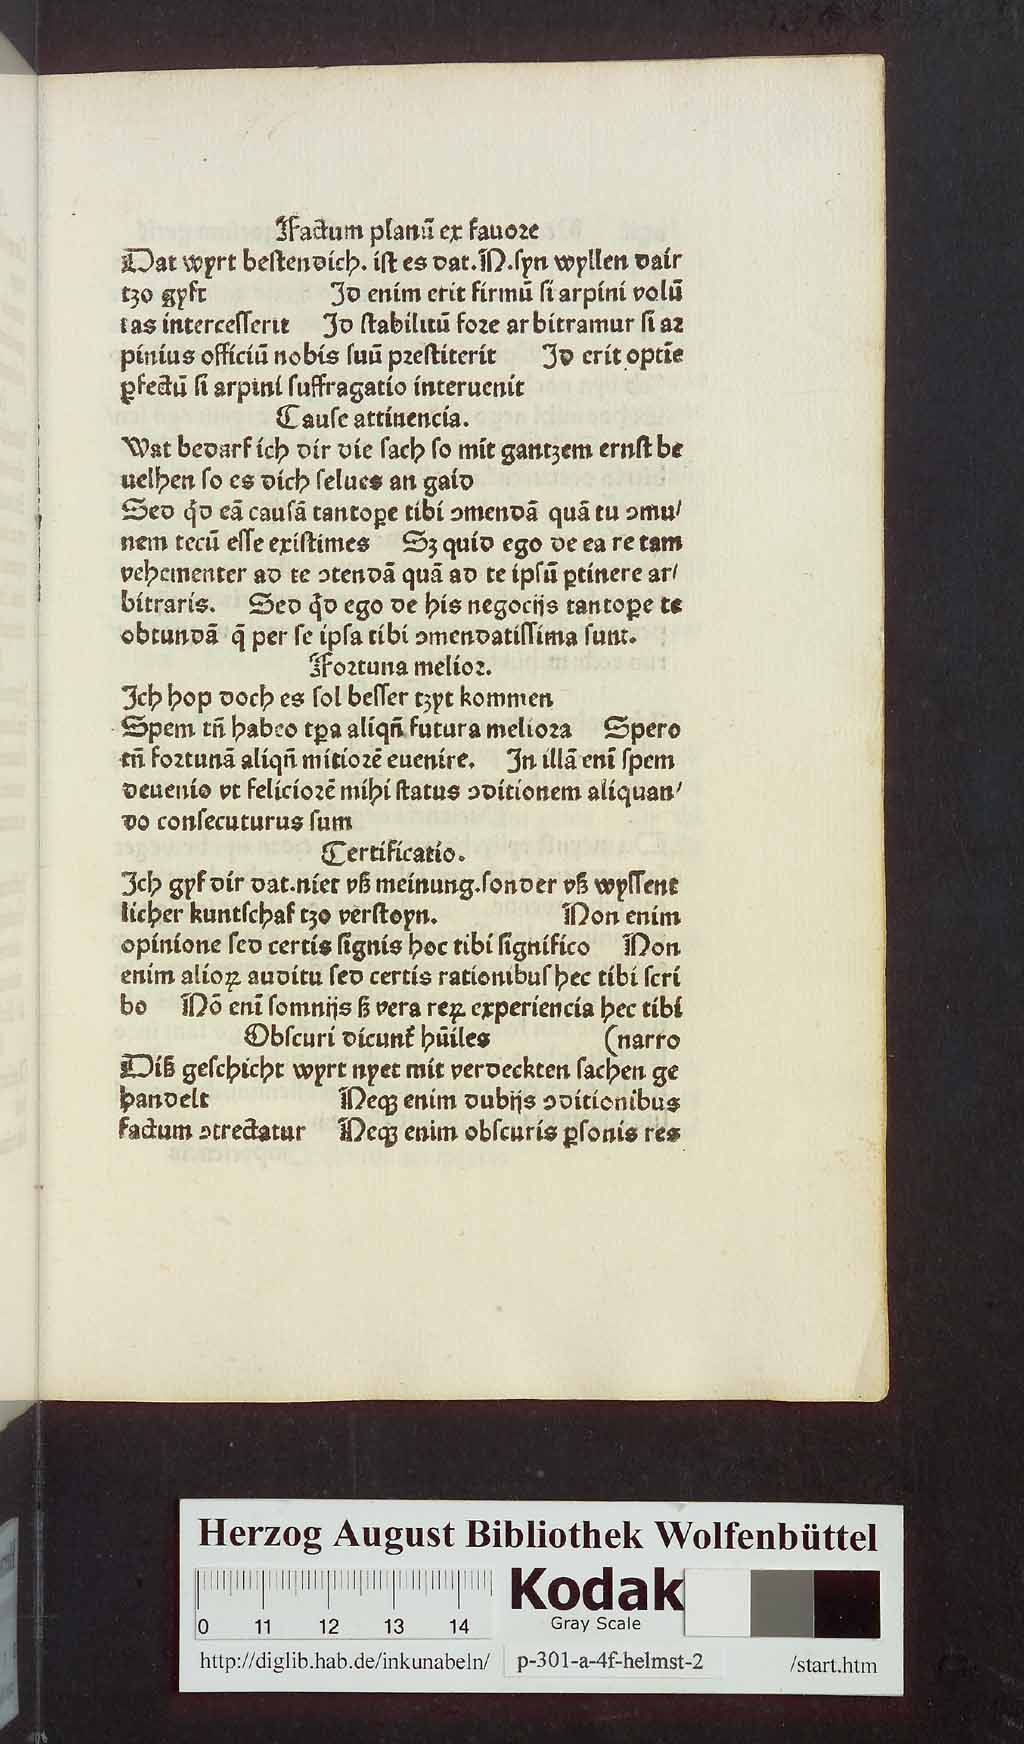 Factum planū ex fauoꝛe
Dat wyrt beſtendich. iſt es dat. N. ſyn wyllen dair
tzo gyft Id enim erit firmū ſi arpini volū
tas interceſſerit Id ſtabilitū foꝛe arbitramur ſi aꝛ
pinius officiū nobis ſuū pꝛeſtiterit Id erit optīe
ꝑfectū ſi arpini ſuffragatio interuenit
Cauſe attinencia.
Wat bedarf ich dir die ſach ſo mit gantzem ernſt be
uelhen ſo es dich ſelues an gaid
Sed qͥd eā cauſā tantoꝑe tibi ↄmendā quā tu ↄmu/
nem tecū eſſe exiſtimes Sꝫ quid ego de ea re tam
vehementer ad te ↄtendā quā ad te ipſū ꝑtinere ar/
bitraris. Sed qͥd ego de his negocijs tantoꝑe te
obtundā q̄ per ſe ipſa tibi ↄmendatiſſima ſunt.
Foꝛtuna melioꝛ.
Ich hop doch es ſol beſſer tzyt kommen
Spem tn̄ habeo tꝑa aliqn̄ futura melioꝛa Spero
tn̄ foꝛtunā aliqn̄ mitioꝛē euenire. In illā enī ſpem
deuenio vt felicioꝛē mihi ſtatus ↄditionem aliquan/
do conſecuturus ſum
Certificatio.
Ich gyf dir dat. niet vß meinung. ſonder vß wyſſent
licher kuntſchaf tzo verſtoyn. Non enim
opinione ſed certis ſignis hoc tibi ſignifico Non
enim alioꝝ auditu ſed certis rationibuſ hec tibi ſcri
bo Nō enī ſomnijs ß vera reꝝ experiencia hec tibi
Obſcuri dicunt᷑ hūiles (narro
Diß geſchicht wyrt nyet mit verdeckten ſachen ge
handelt Neqꝫ enim dubijs ↄditionibus
factum ↄtrectatur Neqꝫ enim obſcuris ꝑſonis res
Herzog August Bibliothek Wolfenbüttel
Kodak
Gray Scale
0 11 12 13 14
http://diglib.hab.de/inkunabeln/ p-301-a-4f-helmst-2 /start.htm